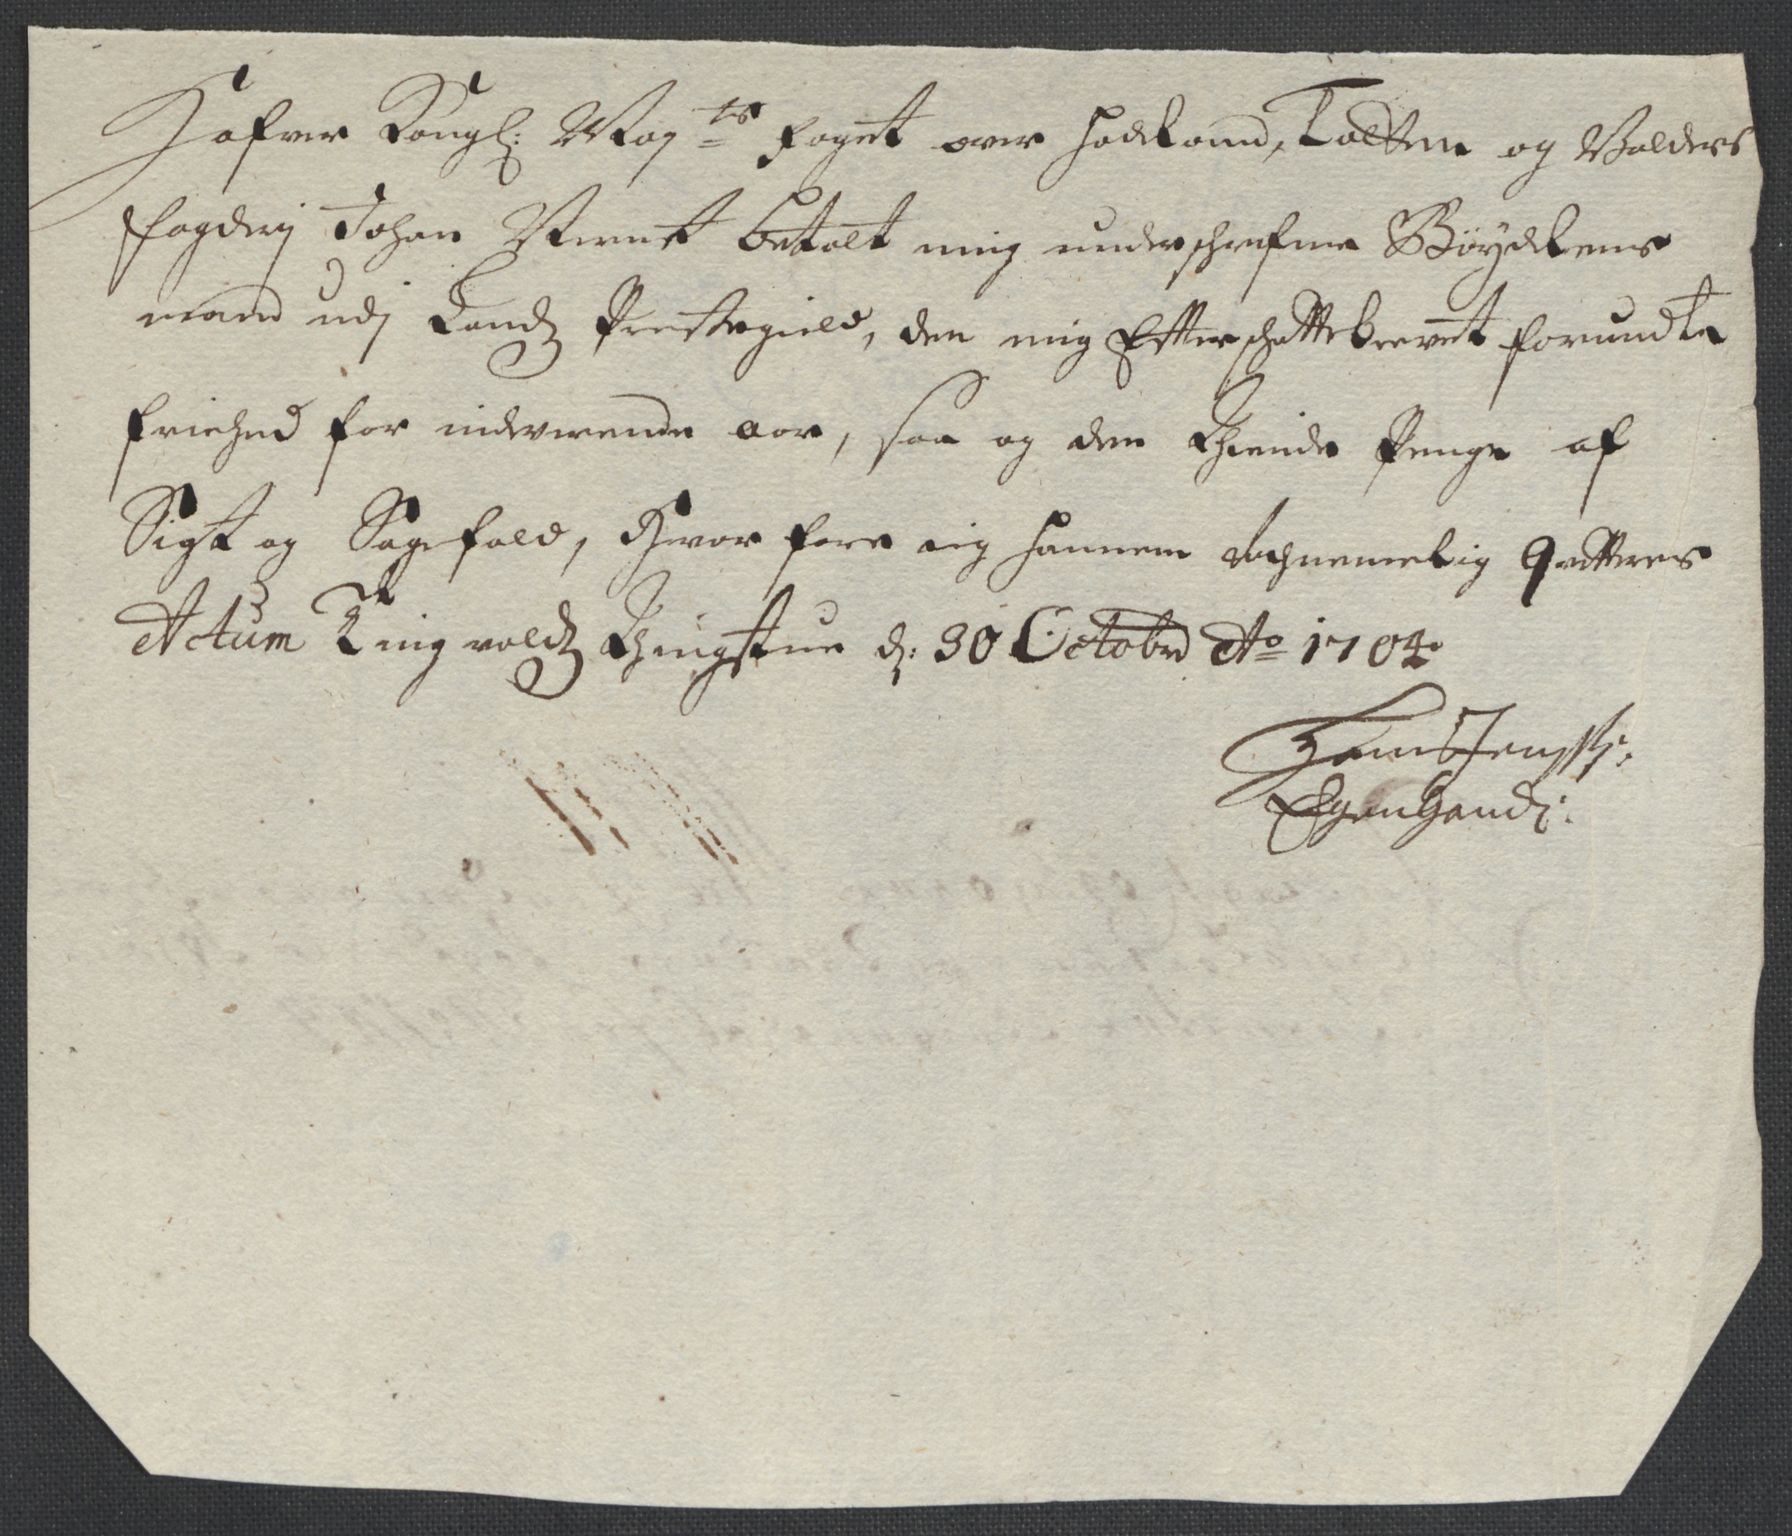 Hafver Kongl: May:ts foget over Hadeland, Totten og Valders
fogderij Johan Wernet betalt mig underschrefne Bøydelens
mand udj Landz Prestegield, den mig Efter schattebrevet forundte
friehed for indeverende aar, saa og den thiende Penge af
Sigt og Sagefald, Hvor fore ieg hannem tachnemelig Qvitteres
Actum Tingvoldz Thingstue d: 30 Octobr Ao 1704
Hans Jenss:
Egenhand: